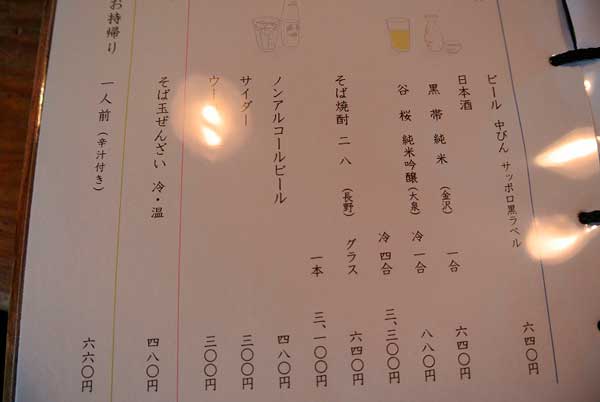 ビール 中びん サッポロ黒ラベル 六四〇円
日本酒
黒帯 純米 (金沢) 一合 六四〇円
谷桜 純米吟醸 (大泉) 冷 一合 八八〇円
冷 四合 三、三〇〇円
そば焼酎 二八 (長野) グラス 六四〇円
一本 三、一〇〇円
ノンアルコールビール 四八〇円
サイダー 三〇〇円
ウー 三〇〇円
そば玉ぜんざい 冷・温 四八〇円
お持帰り
一人前 (辛汁付き) 六六〇円